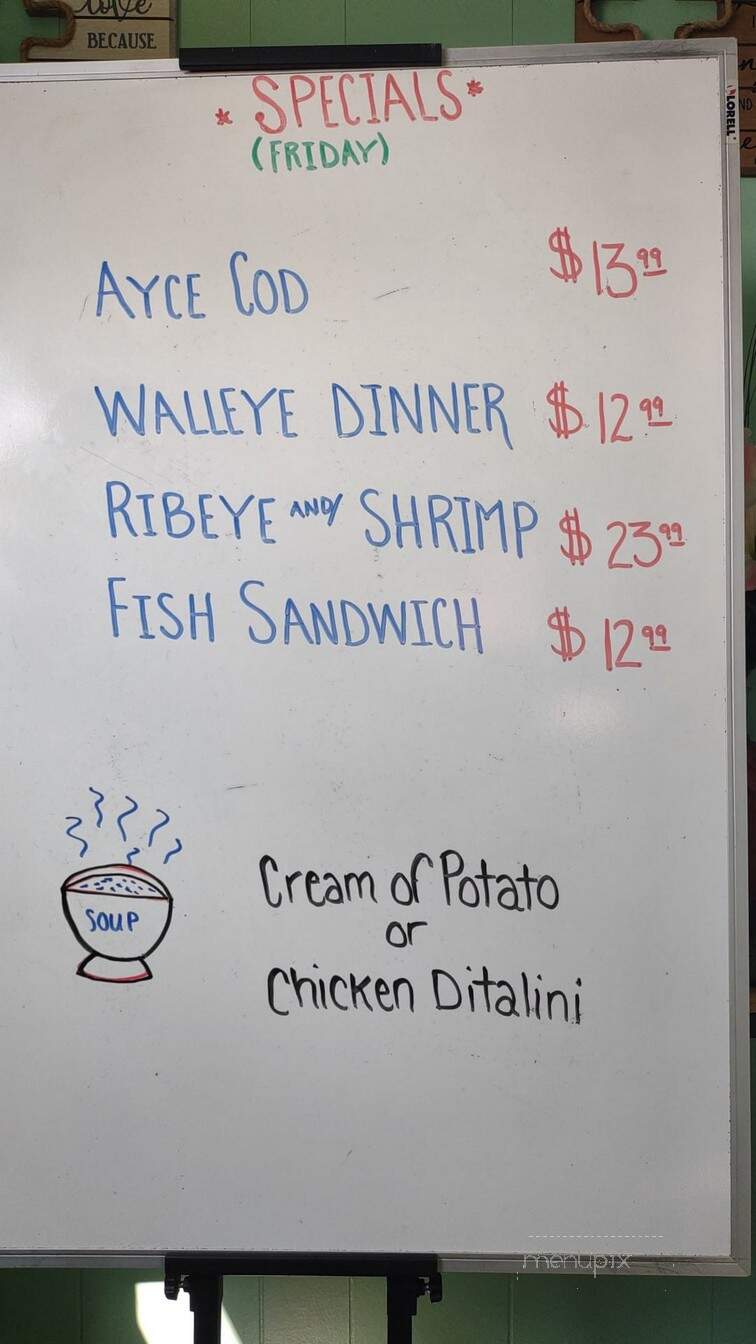 love
BECAUSE
* SPECIALS *
(FRIDAY)
LORELL
AYCE COD $13.99
WALLEYE DINNER $12.99
RIBEYE AND SHRIMP $23.99
FISH SANDWICH $12.99
SOUP
Cream of Potato
or
Chicken Ditalini
menupix